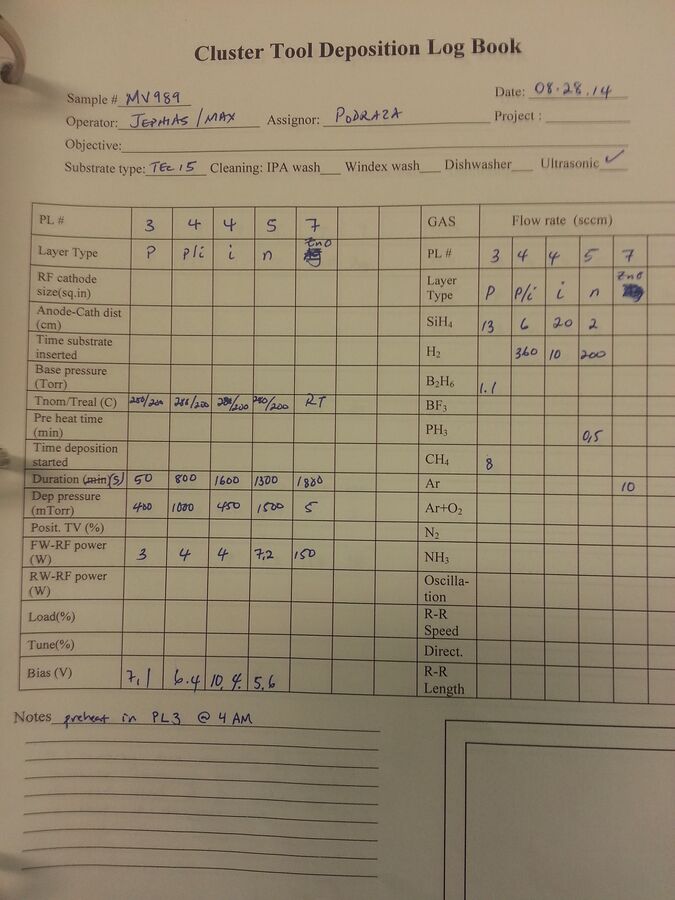 Cluster Tool Deposition Log Book
Sample # MV989 Date: 08.28.14
Operator: JEPHIAS/MAX Assignor: PODRAZA Project :
Objective:
Substrate type: TEC 15 Cleaning: IPA wash Windex wash Dishwasher Ultrasonic ✓
PL # 3 4 4 5 7 GAS Flow rate (sccm)
Layer Type P P/i i n ZnO PL # 3 4 4 5 7
RF cathode size(sq.in) Layer Type P P/i i n ZnO
Anode-Cath dist (cm) SiH4 13 6 20 2
Time substrate inserted H2 360 10 200
Base pressure (Torr) B2H6 1.1
Tnom/Treal (C) 280/200 280/200 280/200 280/200 RT BF3
Pre heat time (min) PH3 0,5
Time deposition started CH4 8
Duration (min(s) 50 800 1600 1300 1800 Ar 10
Dep pressure (mTorr) 400 1000 450 1500 5 Ar+O2
Posit. TV (%) N2
FW-RF power (W) 3 4 4 7,2 150 NH3
RW-RF power (W) Oscilla-tion
Load(%) R-R Speed
Tune(%) Direct.
Bias (V) 7,1 6.4 10,4. 5,6 R-R Length
Notes preheat in PL3 @ 4 AM